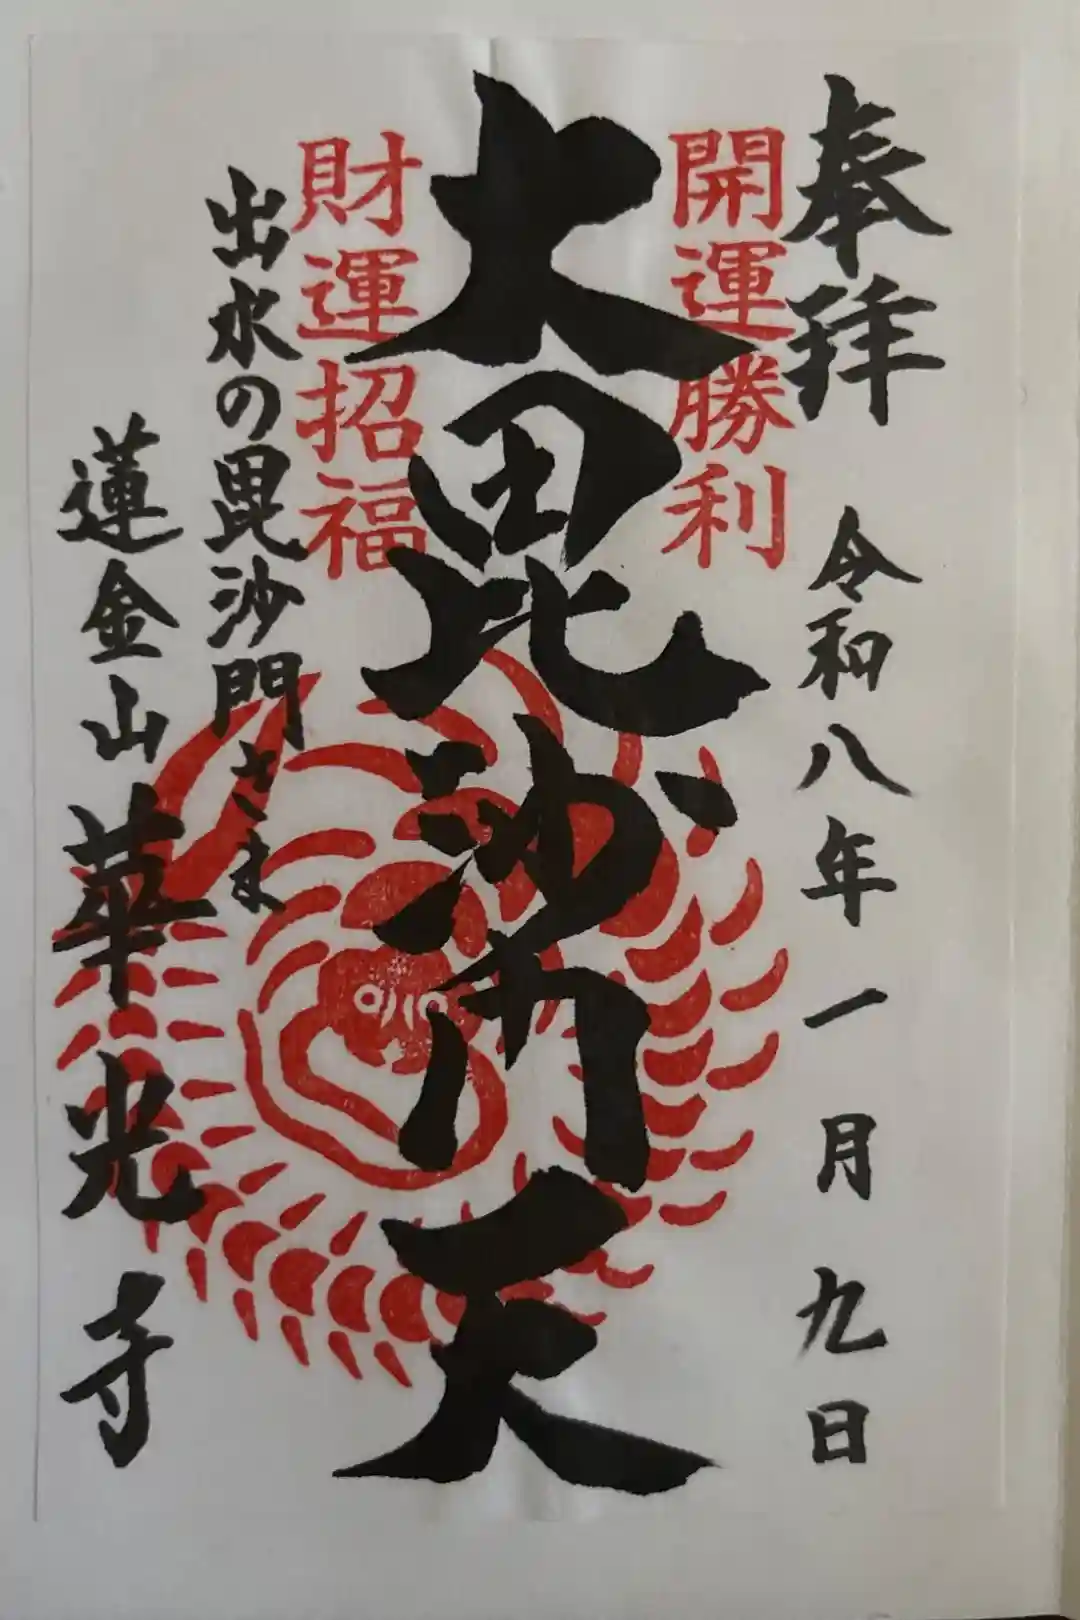 奉拝
令和八年一月九日
開運勝利
大毘沙門天
財運招福
出水の毘沙門さま
蓮金山 華光寺